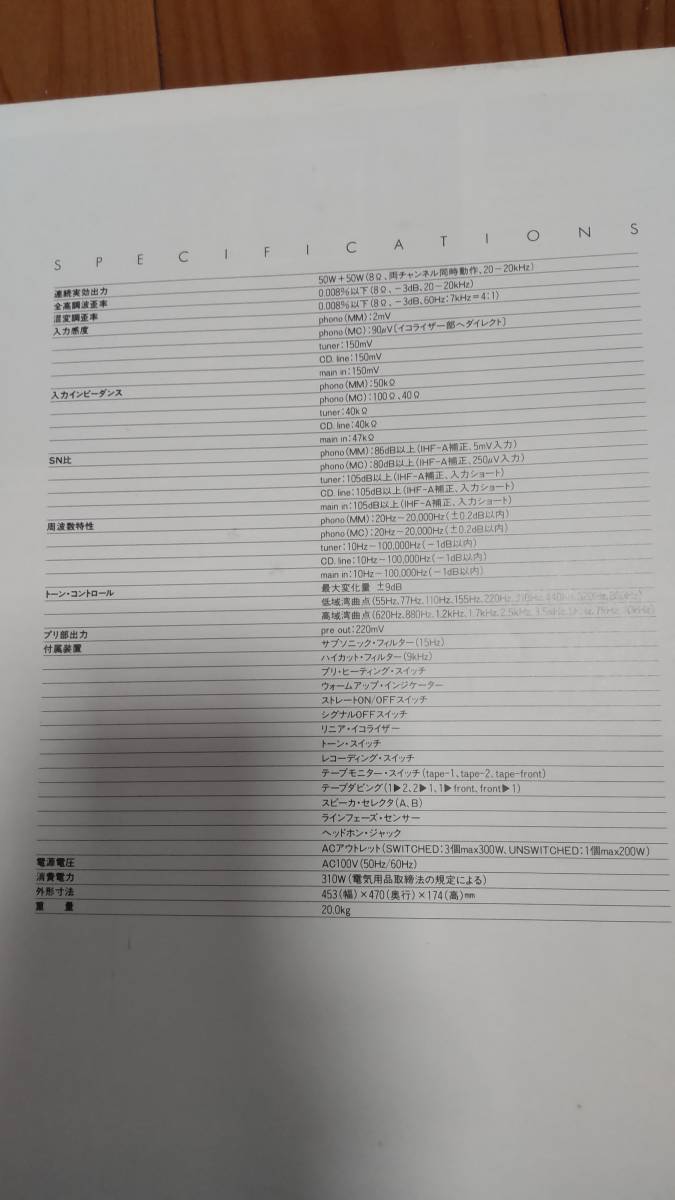 SPECIFICATIONS
連続実効出力 50W+50W(8Ω、両チャンネル同時動作、20−20kHz)
全高調波歪率 0.008%以下(8Ω、−3dB、20−20kHz)
混変調歪率 0.008%以下(8Ω、−3dB、60Hz:7kHz=4:1)
入力感度 phono(MM):2mV
phono(MC):90μV[イコライザー部へダイレクト]
tuner:150mV
CD. line:150mV
main in:150mV
入力インピーダンス phono(MM):50kΩ
phono(MC):100Ω、40Ω
tuner:40kΩ
CD. line:40kΩ
main in:47kΩ
SN比 phono(MM):86dB以上(IHF-A補正、5mV入力)
phono(MC):80dB以上(IHF-A補正、250μV入力)
tuner:105dB以上(IHF-A補正、入力ショート)
CD. line:105dB以上(IHF-A補正、入力ショート)
main in:105dB以上(IHF-A補正、入力ショート)
周波数特性 phono(MM):20Hz−20,000Hz(±0.2dB以内)
phono(MC):20Hz−20,000Hz(±0.2dB以内)
tuner:10Hz−100,000Hz(−1dB以内)
CD. line:10Hz−100,000Hz(−1dB以内)
main in:10Hz−100,000Hz(−1dB以内)
トーン・コントロール 最大変化量 ±9dB
低域湾曲点(55Hz、77Hz、110Hz、155Hz、220Hz、
高域湾曲点(620Hz、880Hz、1.2kHz、1.7kHz、2.5kHz、3.5kHz、
プリ部出力 pre out:220mV
付属装置 サブソニック・フィルター(15Hz)
ハイカット・フィルター(9kHz)
プリ・ヒーティング・スイッチ
ウォームアップ・インジケーター
ストレートON/OFFスイッチ
シグナルOFFスイッチ
リニア・イコライザー
トーン・スイッチ
レコーディング・スイッチ
テープモニター・スイッチ(tape-1、tape-2、tape-front)
テープダビング(1▶2、2▶1、1▶front、front▶1)
スピーカ・セレクタ(A、B)
ラインフェーズ・センサー
ヘッドホン・ジャック
ACアウトレット(SWITCHED:3個max300W、UNSWITCHED:1個max200W)
電源電圧 AC100V(50Hz/60Hz)
消費電力 310W(電気用品取締法の規定による)
外形寸法 453(幅)×470(奥行)×174(高)mm
重量 20.0kg